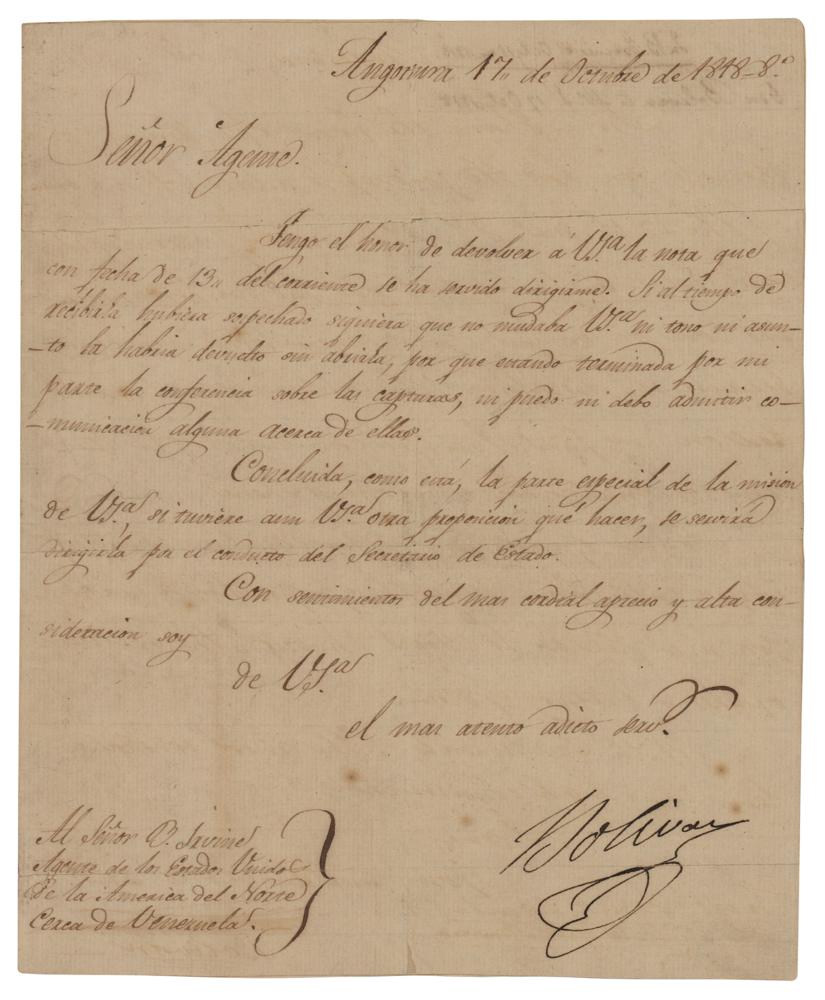 Angostura 17,, de Octubre de 1818-8.º
Señor Agente.
Tengo el honor de devolver á VS.ª la nota que
con fecha de 13,, del corriente se ha servido dirigirme. Si al tiempo de
recibirla hubiera sospechado siquiera que no mudaba VS.ª ni tono ni asun-
-to la habria devuelto sin abrirla, por que estando terminada por mi
parte la conferencia sobre las capturas, ni puedo ni debo admitir co-
-municacion alguna acerca de ellas.
Concluida, como está, la parte especial de la mision
de VS.ª, si tuviere aun VS.ª otra proposicion que hacer, se servirá
dirigirla por el conducto del Secretario de Estado.
Con sentimientos del mas cordial aprecio y alta con-
sideracion soy
de VS.ª
el mas atento adicto serv.r
Bolivar
Al Señor B. Irvine
Agente de los Estados Unidos
de la America del Norte
cerca de Venezuela.